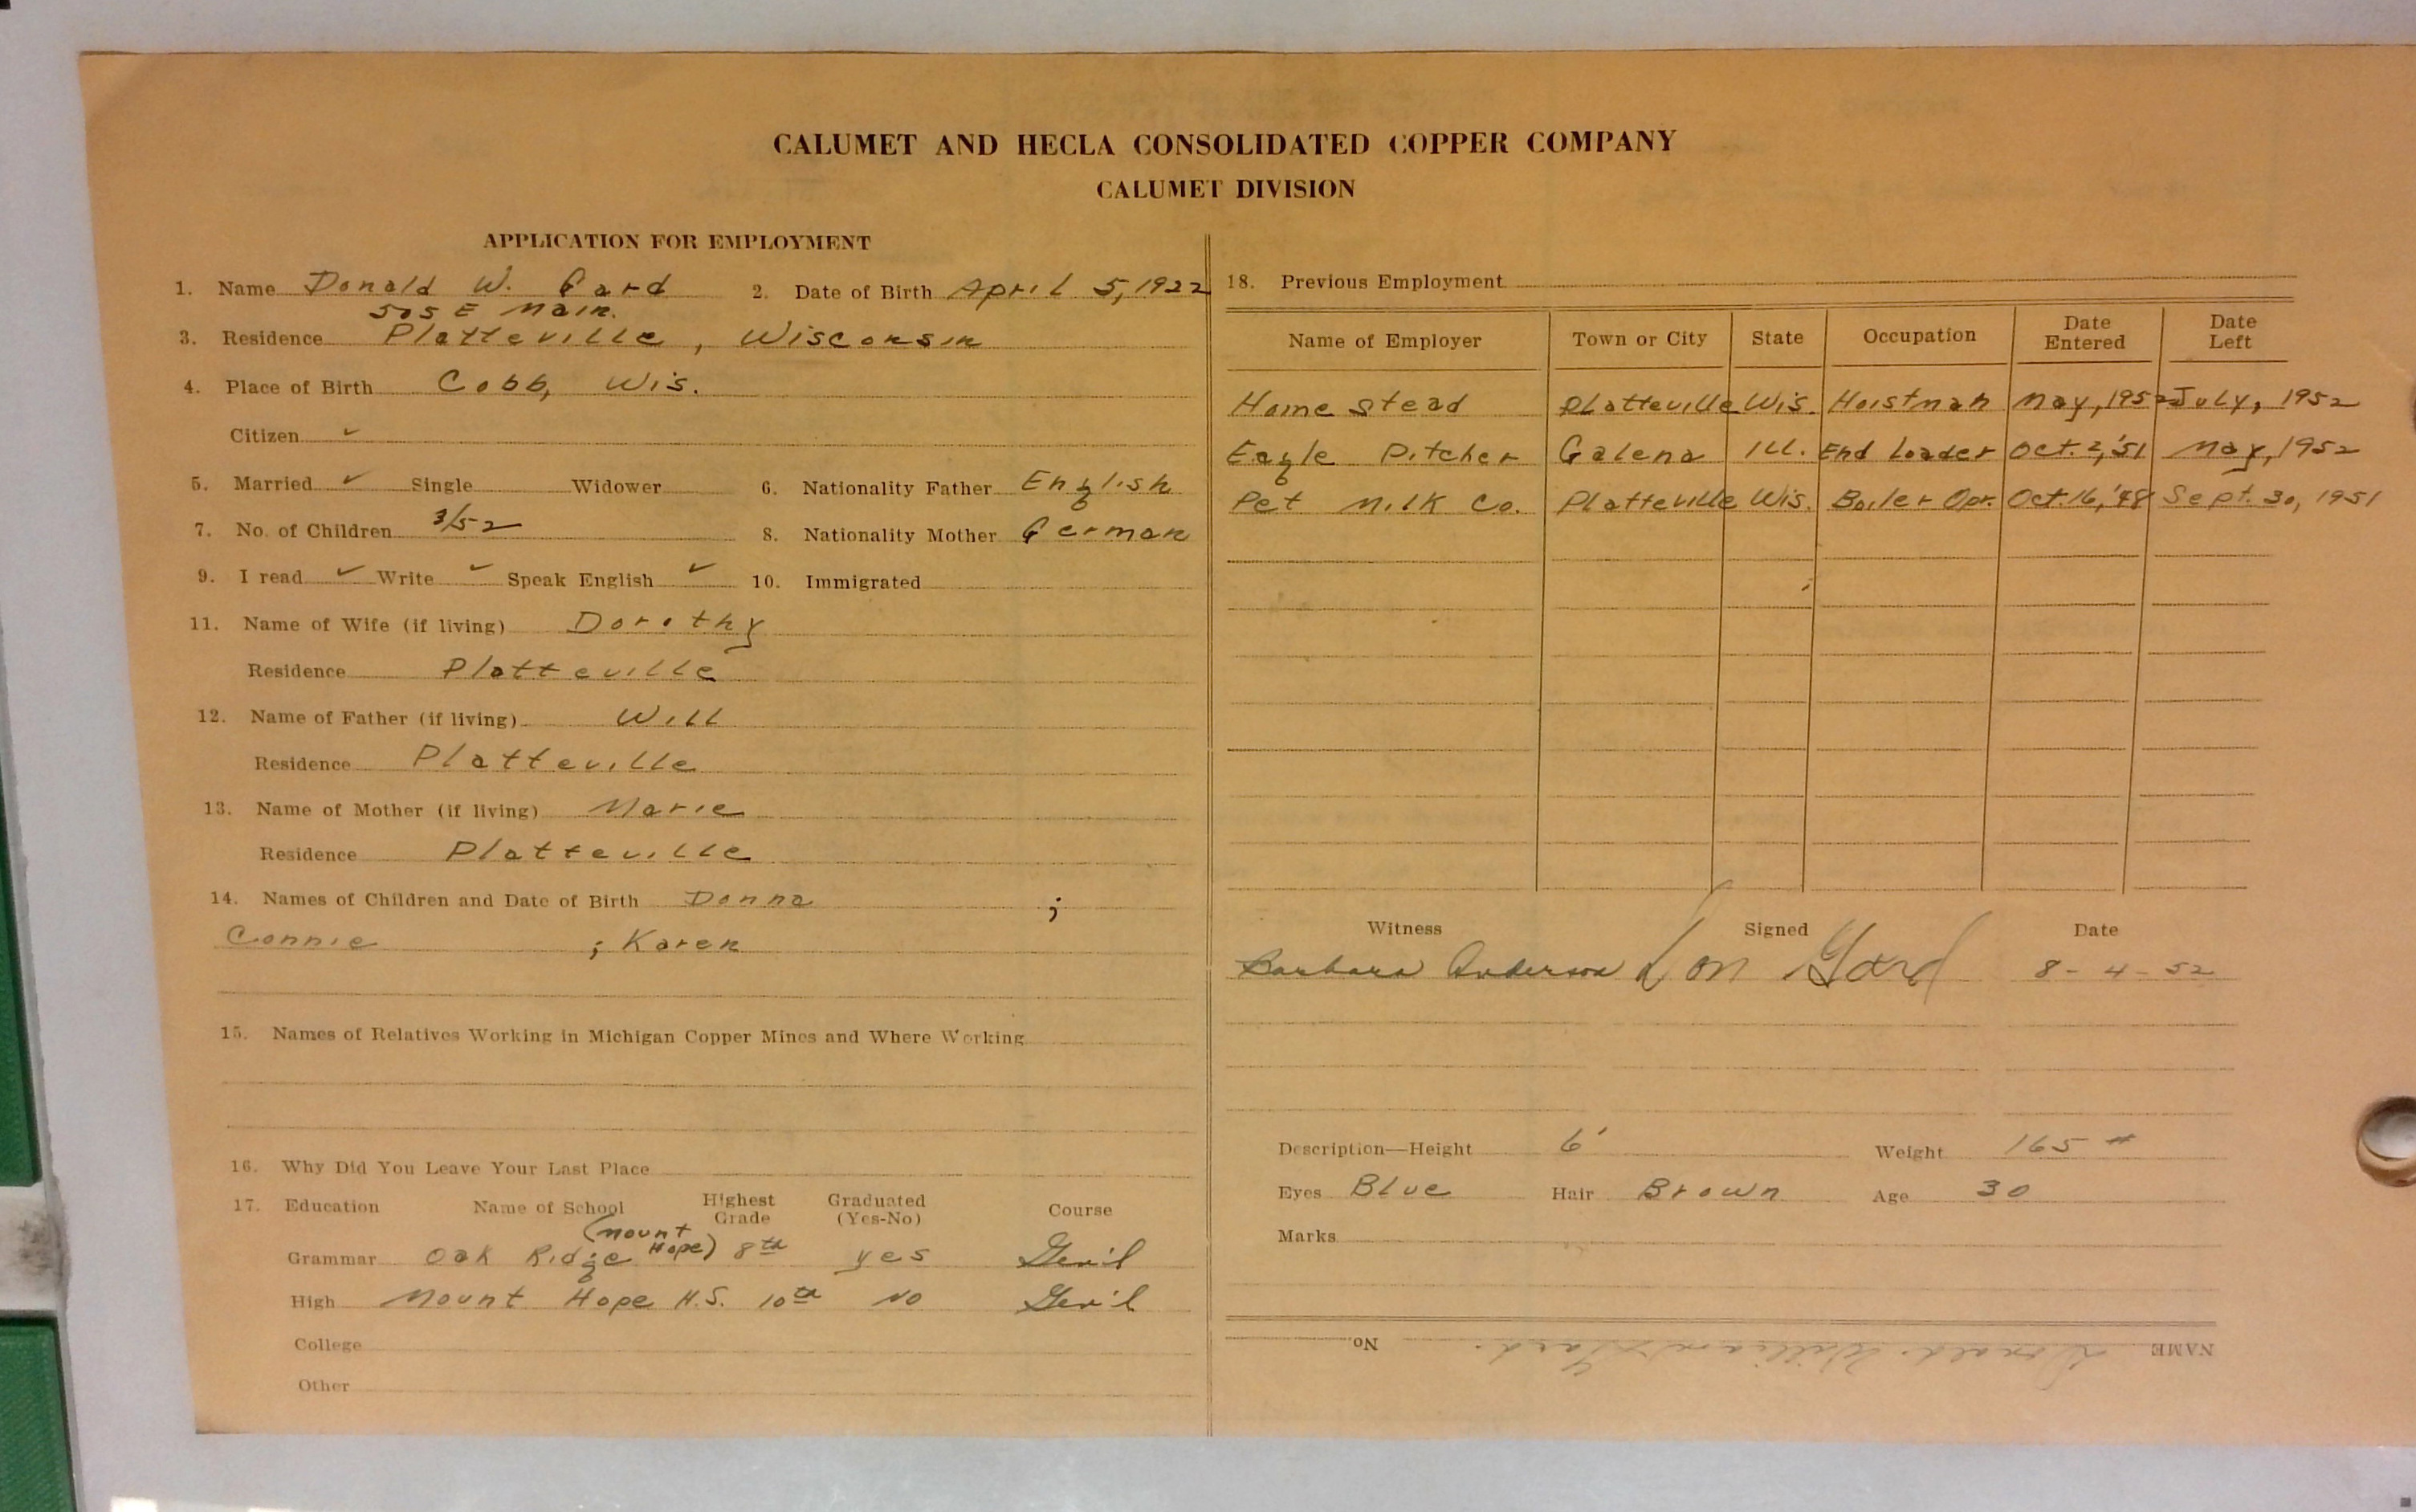 CALUMET AND HECLA CONSOLIDATED COPPER COMPANY
CALUMET DIVISION
APPLICATION FOR EMPLOYMENT
1. Name Donald W. Gard 2. Date of Birth April 5, 1922
505 E Main.
3. Residence Platteville, Wisconsin
4. Place of Birth Cobb, Wis.
Citizen ✓
5. Married ✓ Single Widower 6. Nationality Father English
7. No. of Children 3/52 8. Nationality Mother German
9. I read ✓ Write ✓ Speak English ✓ 10. Immigrated
11. Name of Wife (if living) Dorothy
Residence Platteville
12. Name of Father (if living) Will
Residence Platteville
13. Name of Mother (if living) Marie
Residence Platteville
14. Names of Children and Date of Birth Donna ;
Connie ; Karen
15. Names of Relatives Working in Michigan Copper Mines and Where Working
16. Why Did You Leave Your Last Place
17. Education Name of School Highest Grade Graduated (Yes-No) Course
Grammar Oak Ridge (Mount Hope) 8th yes Gen'l
High Mount Hope H.S. 10th No Gen'l
College
Other
18. Previous Employment
Name of Employer Town or City State Occupation Date Entered Date Left
Homestead Platteville Wis. Hoistman May, 1952 July, 1952
Eagle Pitcher Galena Ill. End Loader Oct. 2, '51 May, 1952
Pet Milk Co. Platteville Wis. Boiler Opr. Oct. 16, '48 Sept. 30, 1951
Witness Signed Date
Barbara Anderson Don Gard 8-4-52
Description—Height 6' Weight 165 #
Eyes Blue Hair Brown Age 30
Marks
NAME Donald William Gard. No.